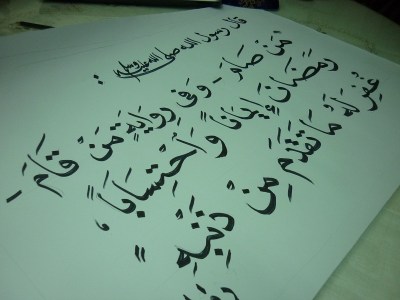 قال رسول الله صلى الله عليه وسلم :
مَنْ صَامَ - وَفِى رِوَايَةٍ مَنْ قَامَ -
رَمَضَانَ إِيمَانًا وَاحْتِسَابًا ،
غُفِرَ لَهُ مَا تَقَدَّمَ مِنْ ذَنْبِهِ =